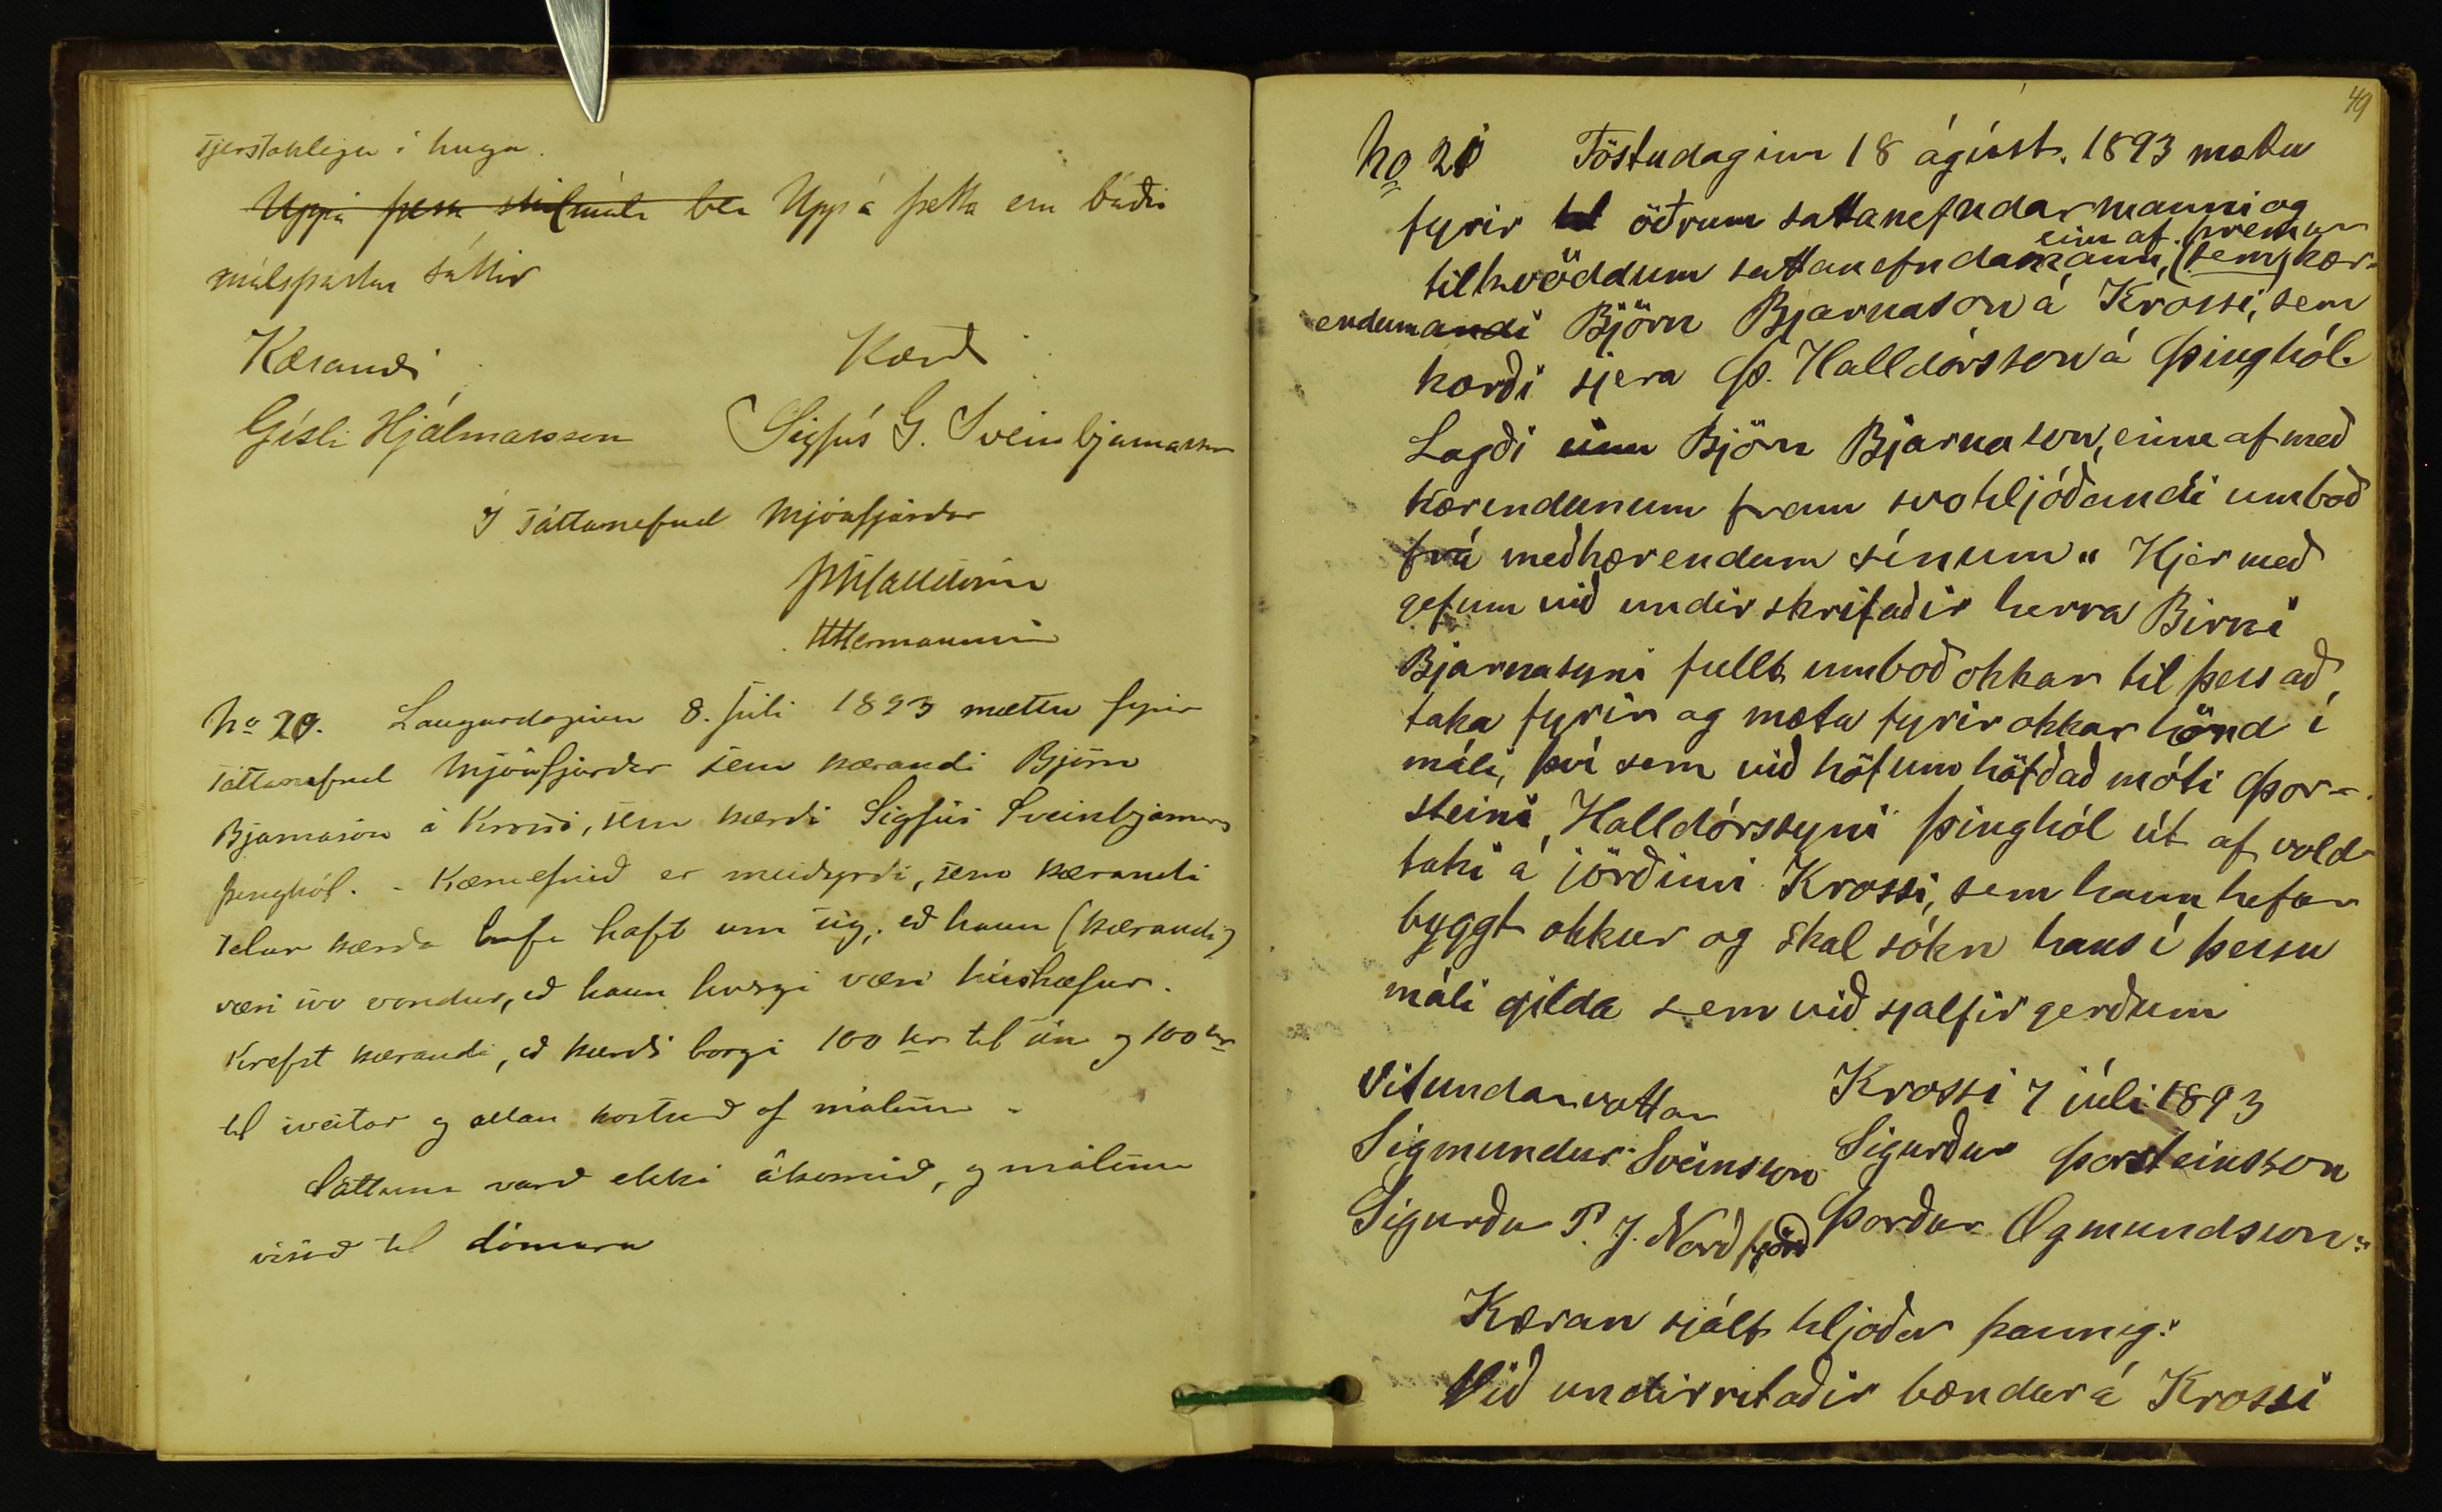 sjerstaklega í huga.
Uppá þessa skilmála ber Uppá þetta eru báðir
málspartar sáttir
Kærandi Kærði
Gísli Hjálmarsson Sigfús G. Sveinbjarnarson
Í sáttanefnd Mjóafjarðar
ÞHalldórsson
HHermannsson
No 20. Laugardaginn 8. júlí 1893 mættu fyrir
sáttanefnd Mjóafjarðar sem kærandi Björn
Bjarnason á Krossi, sem kærði Sigfús Sveinbjarnars
Þinghól. - Kæruefnið er meiðyrði, sem kærandi
telur kærða hafa haft um sig, að hann (kærandi)
væri svo vondur, að hann hvergi væri húshæfur.
Krefst kærandi, að kærði borgi 100 kr til sín og 100 kr
til sveitar og allan kostnað af málinu -
Sáttum varð ekki ákomið, og málinu
vísað til dómara
49
No 21 Föstudaginn 18 ágúst. 1893 mættu
fyrir öðrum sattanefndarmanni og
einn af þremur
tilkvöddum sattanefndamanni, (sem) kær-
endum andi Björn Bjarnason á Krossi, sem
kærði sjera Þ. Halldórsson á Þinghól.
Lagði einn Björn Bjarnason, einn af með
kærendunum fram svohljóðandi umboð
frá meðkærendum sínum „ Hjer með
gefum við undirskrifaðir herra Birni
Bjarnasyni fullt umboð okkar til þess að
taka fyrir og mæta fyrir okkar hönd í
máli, því sem við höfum höfðað móti Þor-
steini Halldórssyni Þinghól út af vold
taki á jörðinni Krossi, sem hann hefur
byggt okkur og skal sókn hans í þessu
máli gilda sem við sjalfir gerðum
Vitundarvottar Krossi 7 júlí 1893
Sigmundur Sveinsson Sigurður Þorsteinsson
Sigurður P. J. Norðfjörð Þorður Ögmundsson"
Kæran sjálf hljóðar þannig:
Við undirritaðir bændur á Krossi